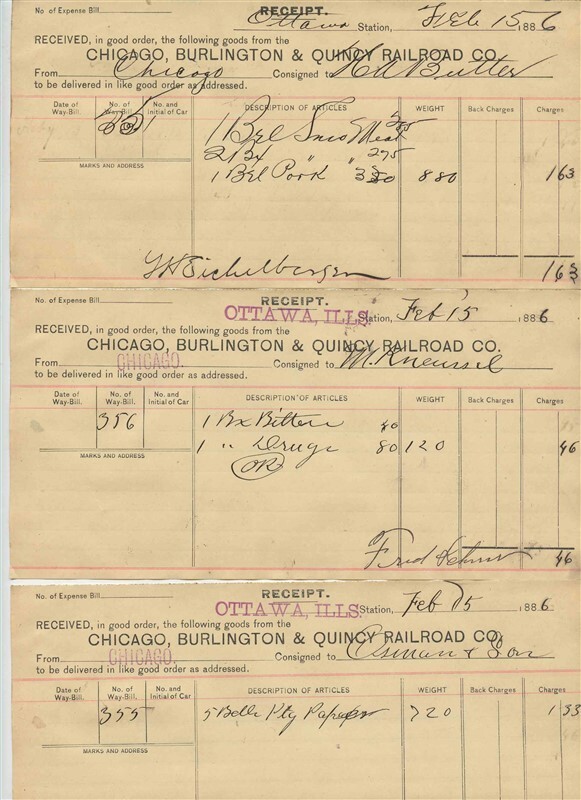 No. of Expense Bill RECEIPT.
Ottawa Station, Feb 15 1886
RECEIVED, in good order, the following goods from the
CHICAGO, BURLINGTON & QUINCY RAILROAD CO.
From Chicago Consigned to Butter
to be delivered in like good order as addressed.
Date of Way-Bill. No. of Way-Bill. No. and Initial of Car DESCRIPTION OF ARTICLES WEIGHT Back Charges Charges
1 Bbl Meat
275
1 Bbl Pork 330 880 163
MARKS AND ADDRESS
Eichelberger 163
No. of Expense Bill RECEIPT.
OTTAWA, ILLS. Station, Feb 15 1886
RECEIVED, in good order, the following goods from the
CHICAGO, BURLINGTON & QUINCY RAILROAD CO.
From CHICAGO. Consigned to M. Kneussl
to be delivered in like good order as addressed.
Date of Way-Bill. No. of Way-Bill. No. and Initial of Car DESCRIPTION OF ARTICLES WEIGHT Back Charges Charges
356 1 Bx Bitters 40
1 " Drugs 80 120 46
OR
MARKS AND ADDRESS
Fred 46
No. of Expense Bill RECEIPT.
OTTAWA, ILLS. Station, Feb 15 1886
RECEIVED, in good order, the following goods from the
CHICAGO, BURLINGTON & QUINCY RAILROAD CO.
From CHICAGO. Consigned to Osman & Son
to be delivered in like good order as addressed.
Date of Way-Bill. No. of Way-Bill. No. and Initial of Car DESCRIPTION OF ARTICLES WEIGHT Back Charges Charges
355 5 Bdls Ptg Paper 720 133
MARKS AND ADDRESS